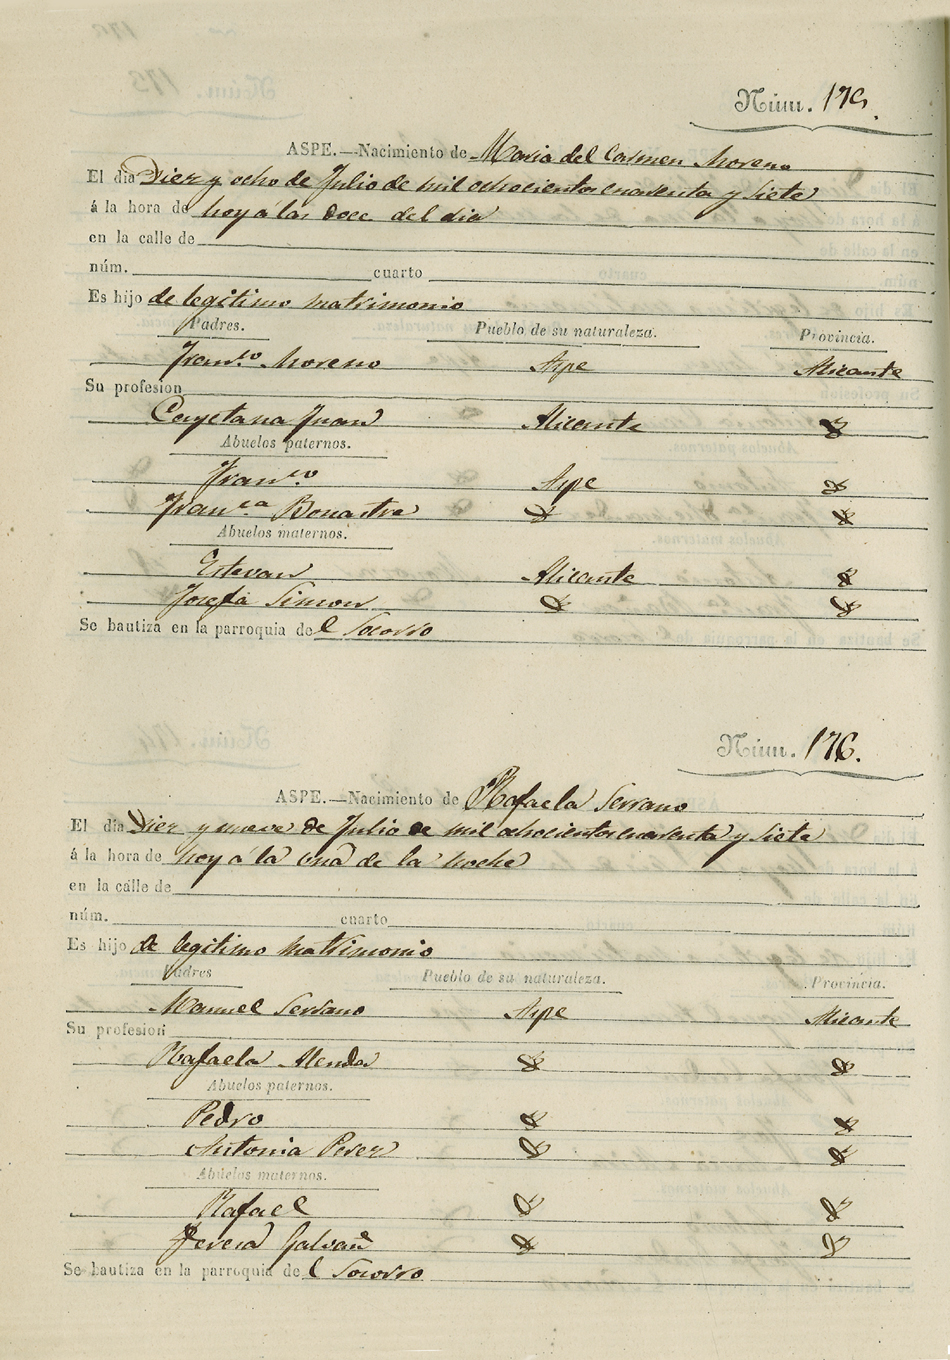 Núm. 175.
ASPE.—Nacimiento de Maria del Carmen Moreno
El dia Diez y ocho de Julio de mil ochocientos cuarenta y siete
á la hora de hoy á las doce del dia
en la calle de
núm. cuarto
Es hijo de legitimo matrimonio
Padres. Pueblo de su naturaleza. Provincia.
Franco Moreno Aspe Alicante
Su profesion
Cayetana Juan Alicante
Abuelos paternos.
Franco Aspe
Franca Bonastre
Abuelos maternos.
Estevan Alicante
Josefa Simon
Se bautiza en la parroquia del Socorro
Núm. 176.
ASPE.—Nacimiento de Rafaela Serrano
El dia Diez y nueve de Julio de mil ochocientos cuarenta y siete
á la hora de hoy á la una de la noche
en la calle de
núm. cuarto
Es hijo de legitimo matrimonio
Padres Pueblo de su naturaleza. Provincia.
Manuel Serrano Aspe Alicante
Su profesion
Rafaela Alenda
Abuelos paternos.
Pedro
Antonia Perez
Abuelos maternos.
Rafael
Teresa Galvañ
Se bautiza en la parroquia del Socorro